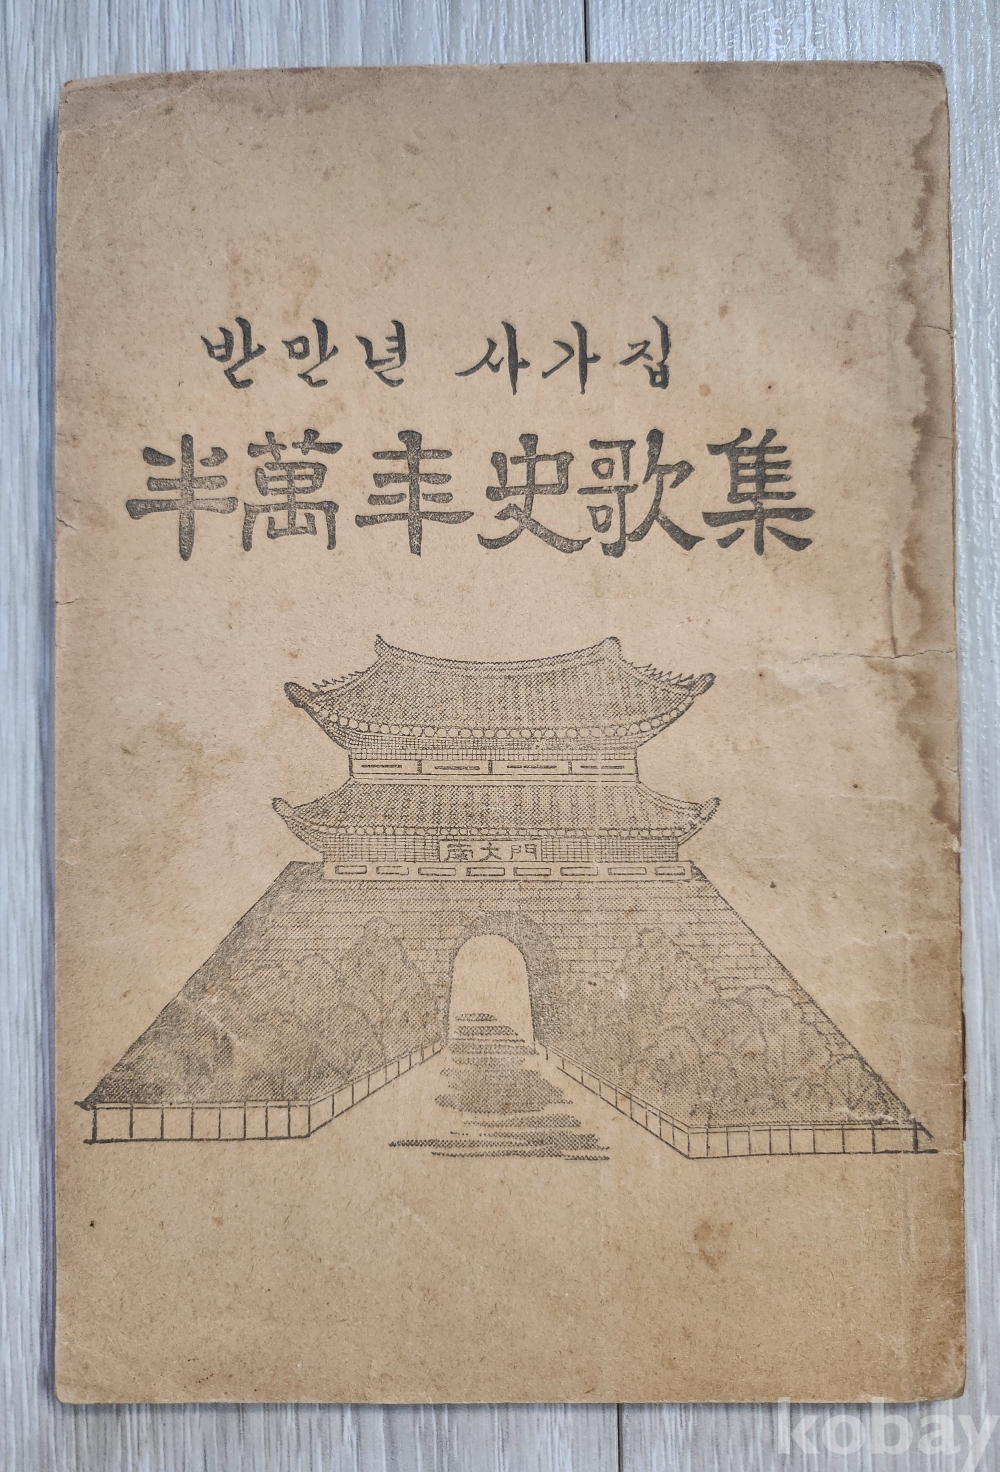 반만년 사가집
半萬年史歌集
南大門
kobay